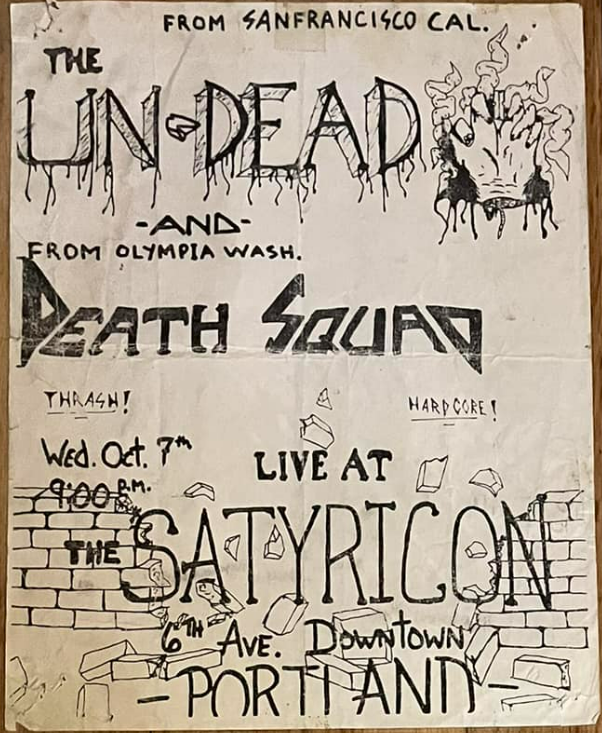 FROM SANFRANCISCO CAL.
THE
UN-DEAD
-AND-
FROM OLYMPIA WASH.
DEATH SQUAD
THRASH!
HARDCORE!
Wed. Oct. 7th
9:00 P.M.
LIVE AT
THE SATYRICON
6TH AVE. DOWNTOWN
-PORTLAND-